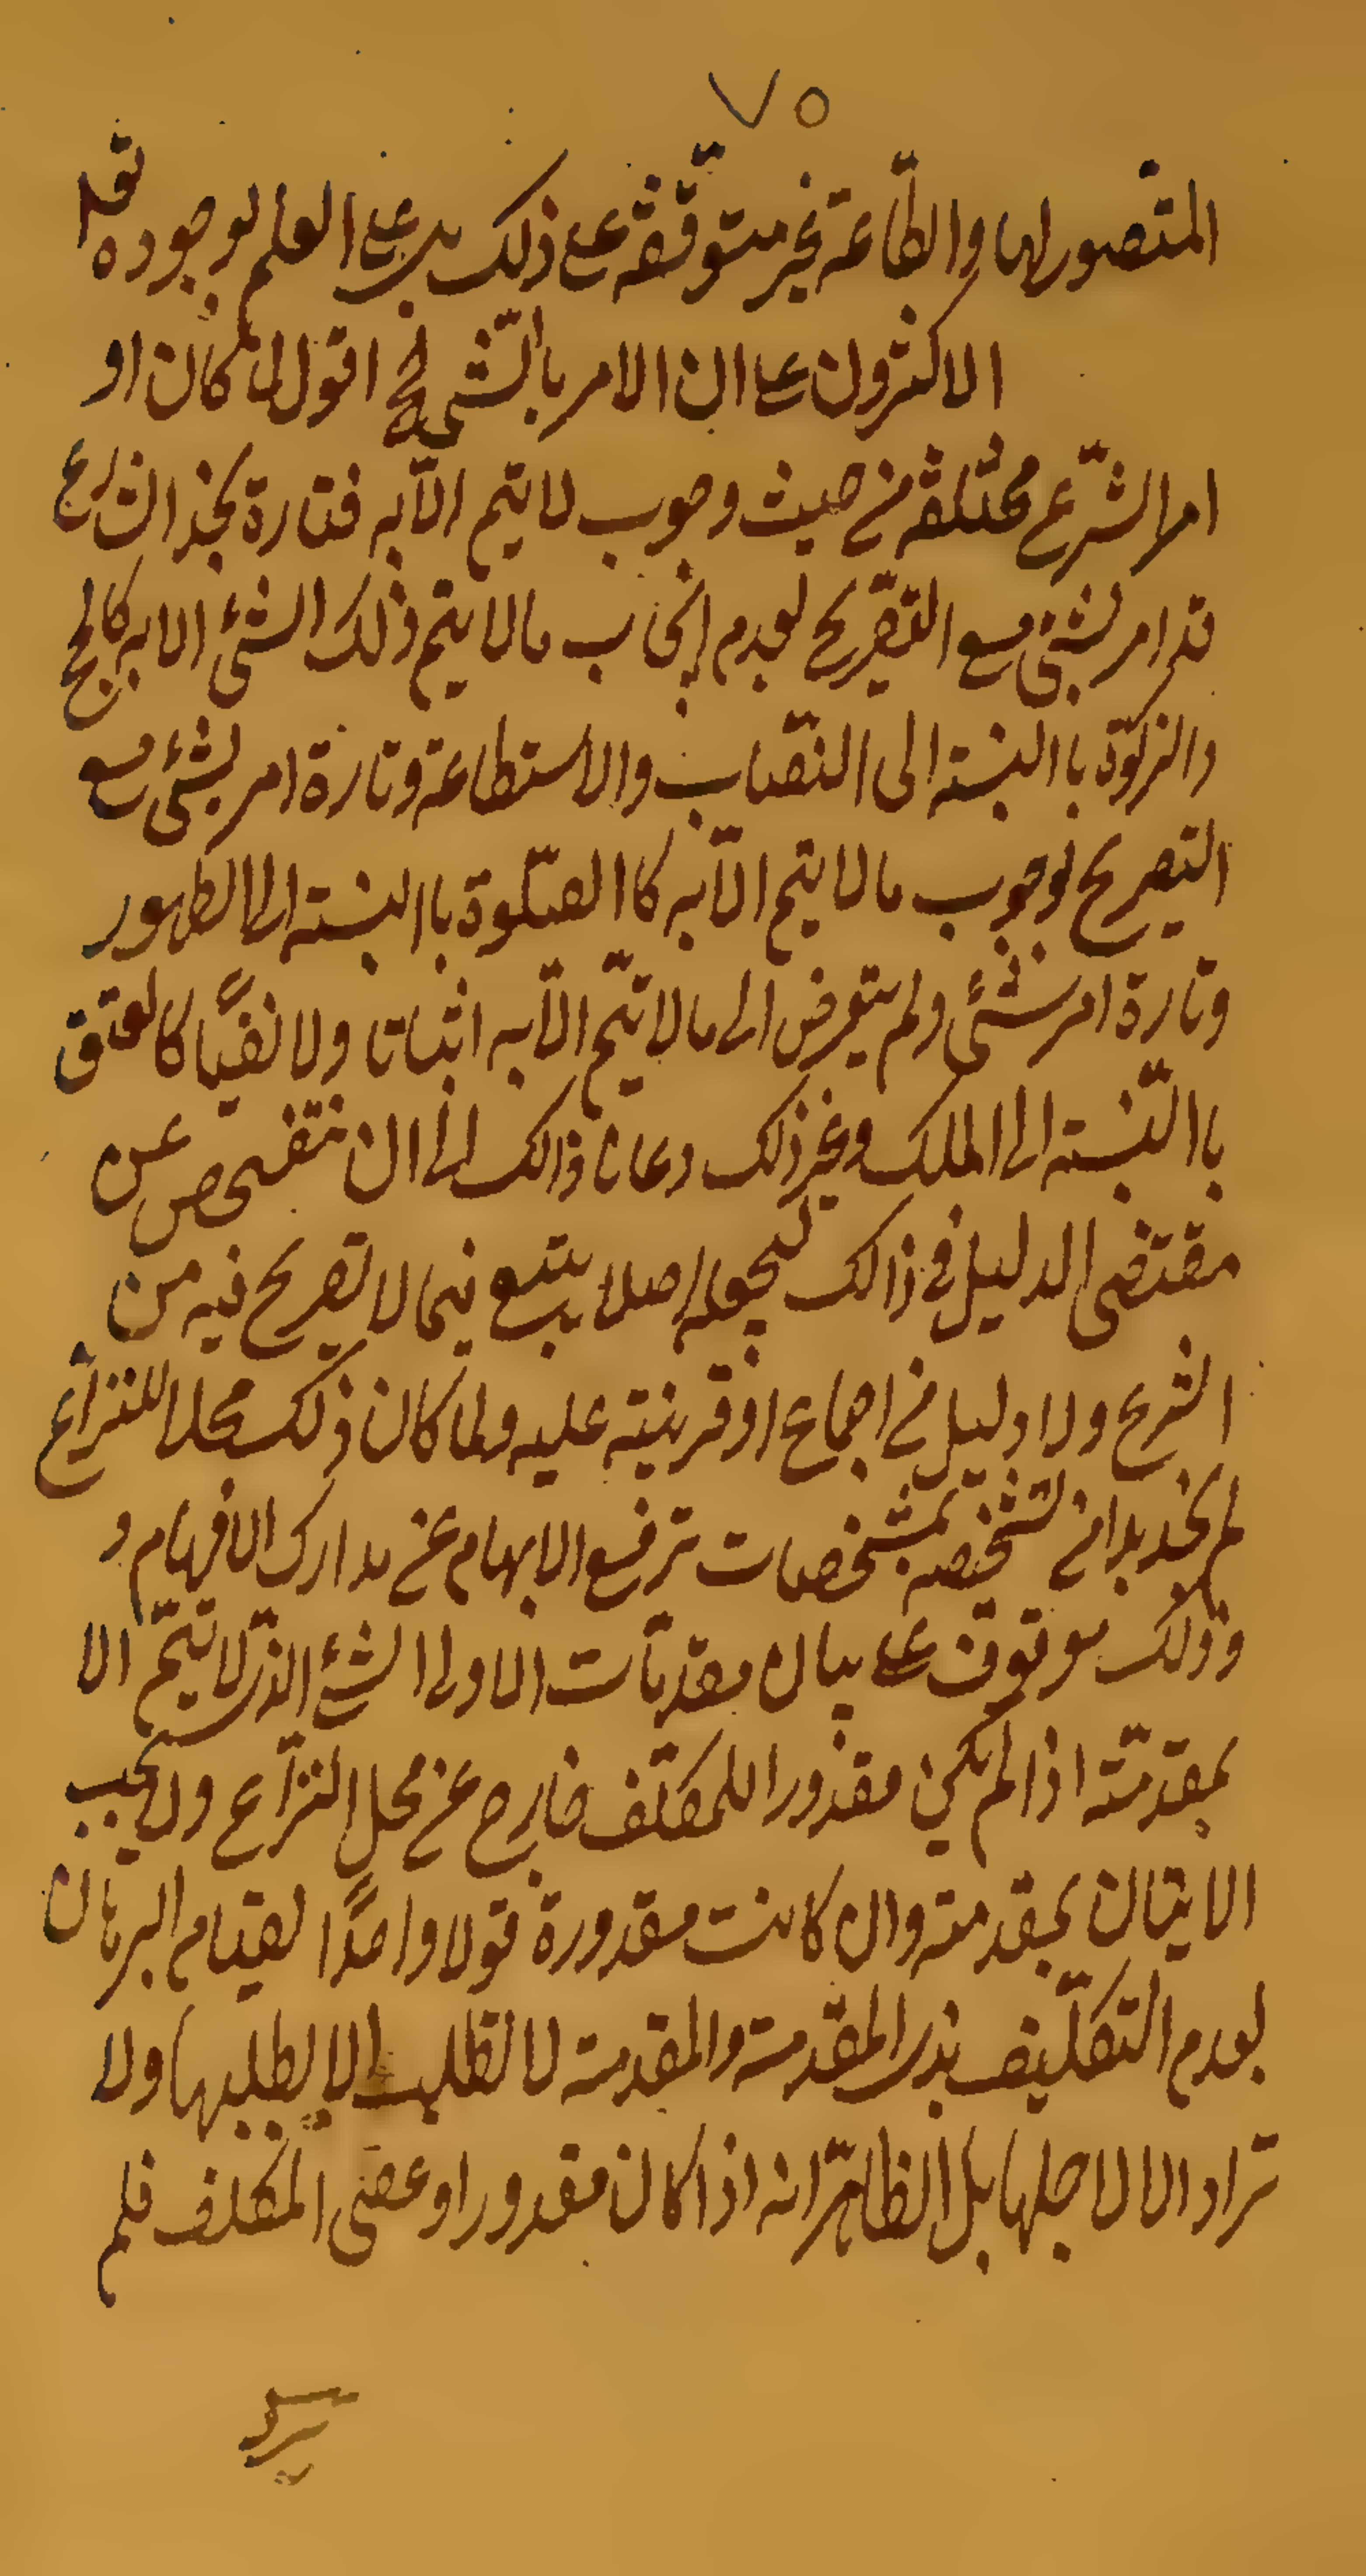 ٧٥
المتصور لها والطّاعة غير متوقّفة على ذلك بل على العلم بوجوده قوله
الاكثرون على ان الامر بالشّي الخ اقول لما كان او
امر الشّرع مختلفة من حيث وجوب لا يتم الّا به فتارة نجد الشارع
قد امر بشئ مع التّصريح بعدم إيجاب مالا يتم ذلك الشئ الا به كالحج
والزكوة باالنسبته الى النّصاب والاستطاعة وتارة امر بشئ مع
التصريح بوجوب مالا يتم الّا به كاالصّلوة باالنسبته الى الطهور
وتارة امر بشئ ولم يتعرض الى مالا يتّم الّا به اثباتا ولا نفيًا كالعتق
باالنّسبته الى الملك وغير ذلك دعانا ذالك الى ان نتفحص عن
مقتضى الدليل في ذالك لنجعله اصلا يتبع فيما لا تصريح فيه من
الشرع ولا دليل من اجماع او قرينته عليه ولما كان ذلك محلا للنزاع
لم نجد بدا من تشخيصه بمشخصات ترفع الابهام عن مدارك الافهام و
وذلك موقوف على بيان مقدمات الاولى الشئ الذي لا يتمّ الا
بمقدمته اذا لم يكن مقدورا للمكلّف خارج عن محل النزاع ولا يجب
الايتان بمقدمته وان كانت مقدورة قولا واحدًا لقيام البرهان
بعدم التكلّيف بذى المقدمته والمقدمته لا تطلب الا لطلبها ولا
تراد الا لاجلها بل الظاهر انه اذا كان مقدورا وعصى المكلف فلم